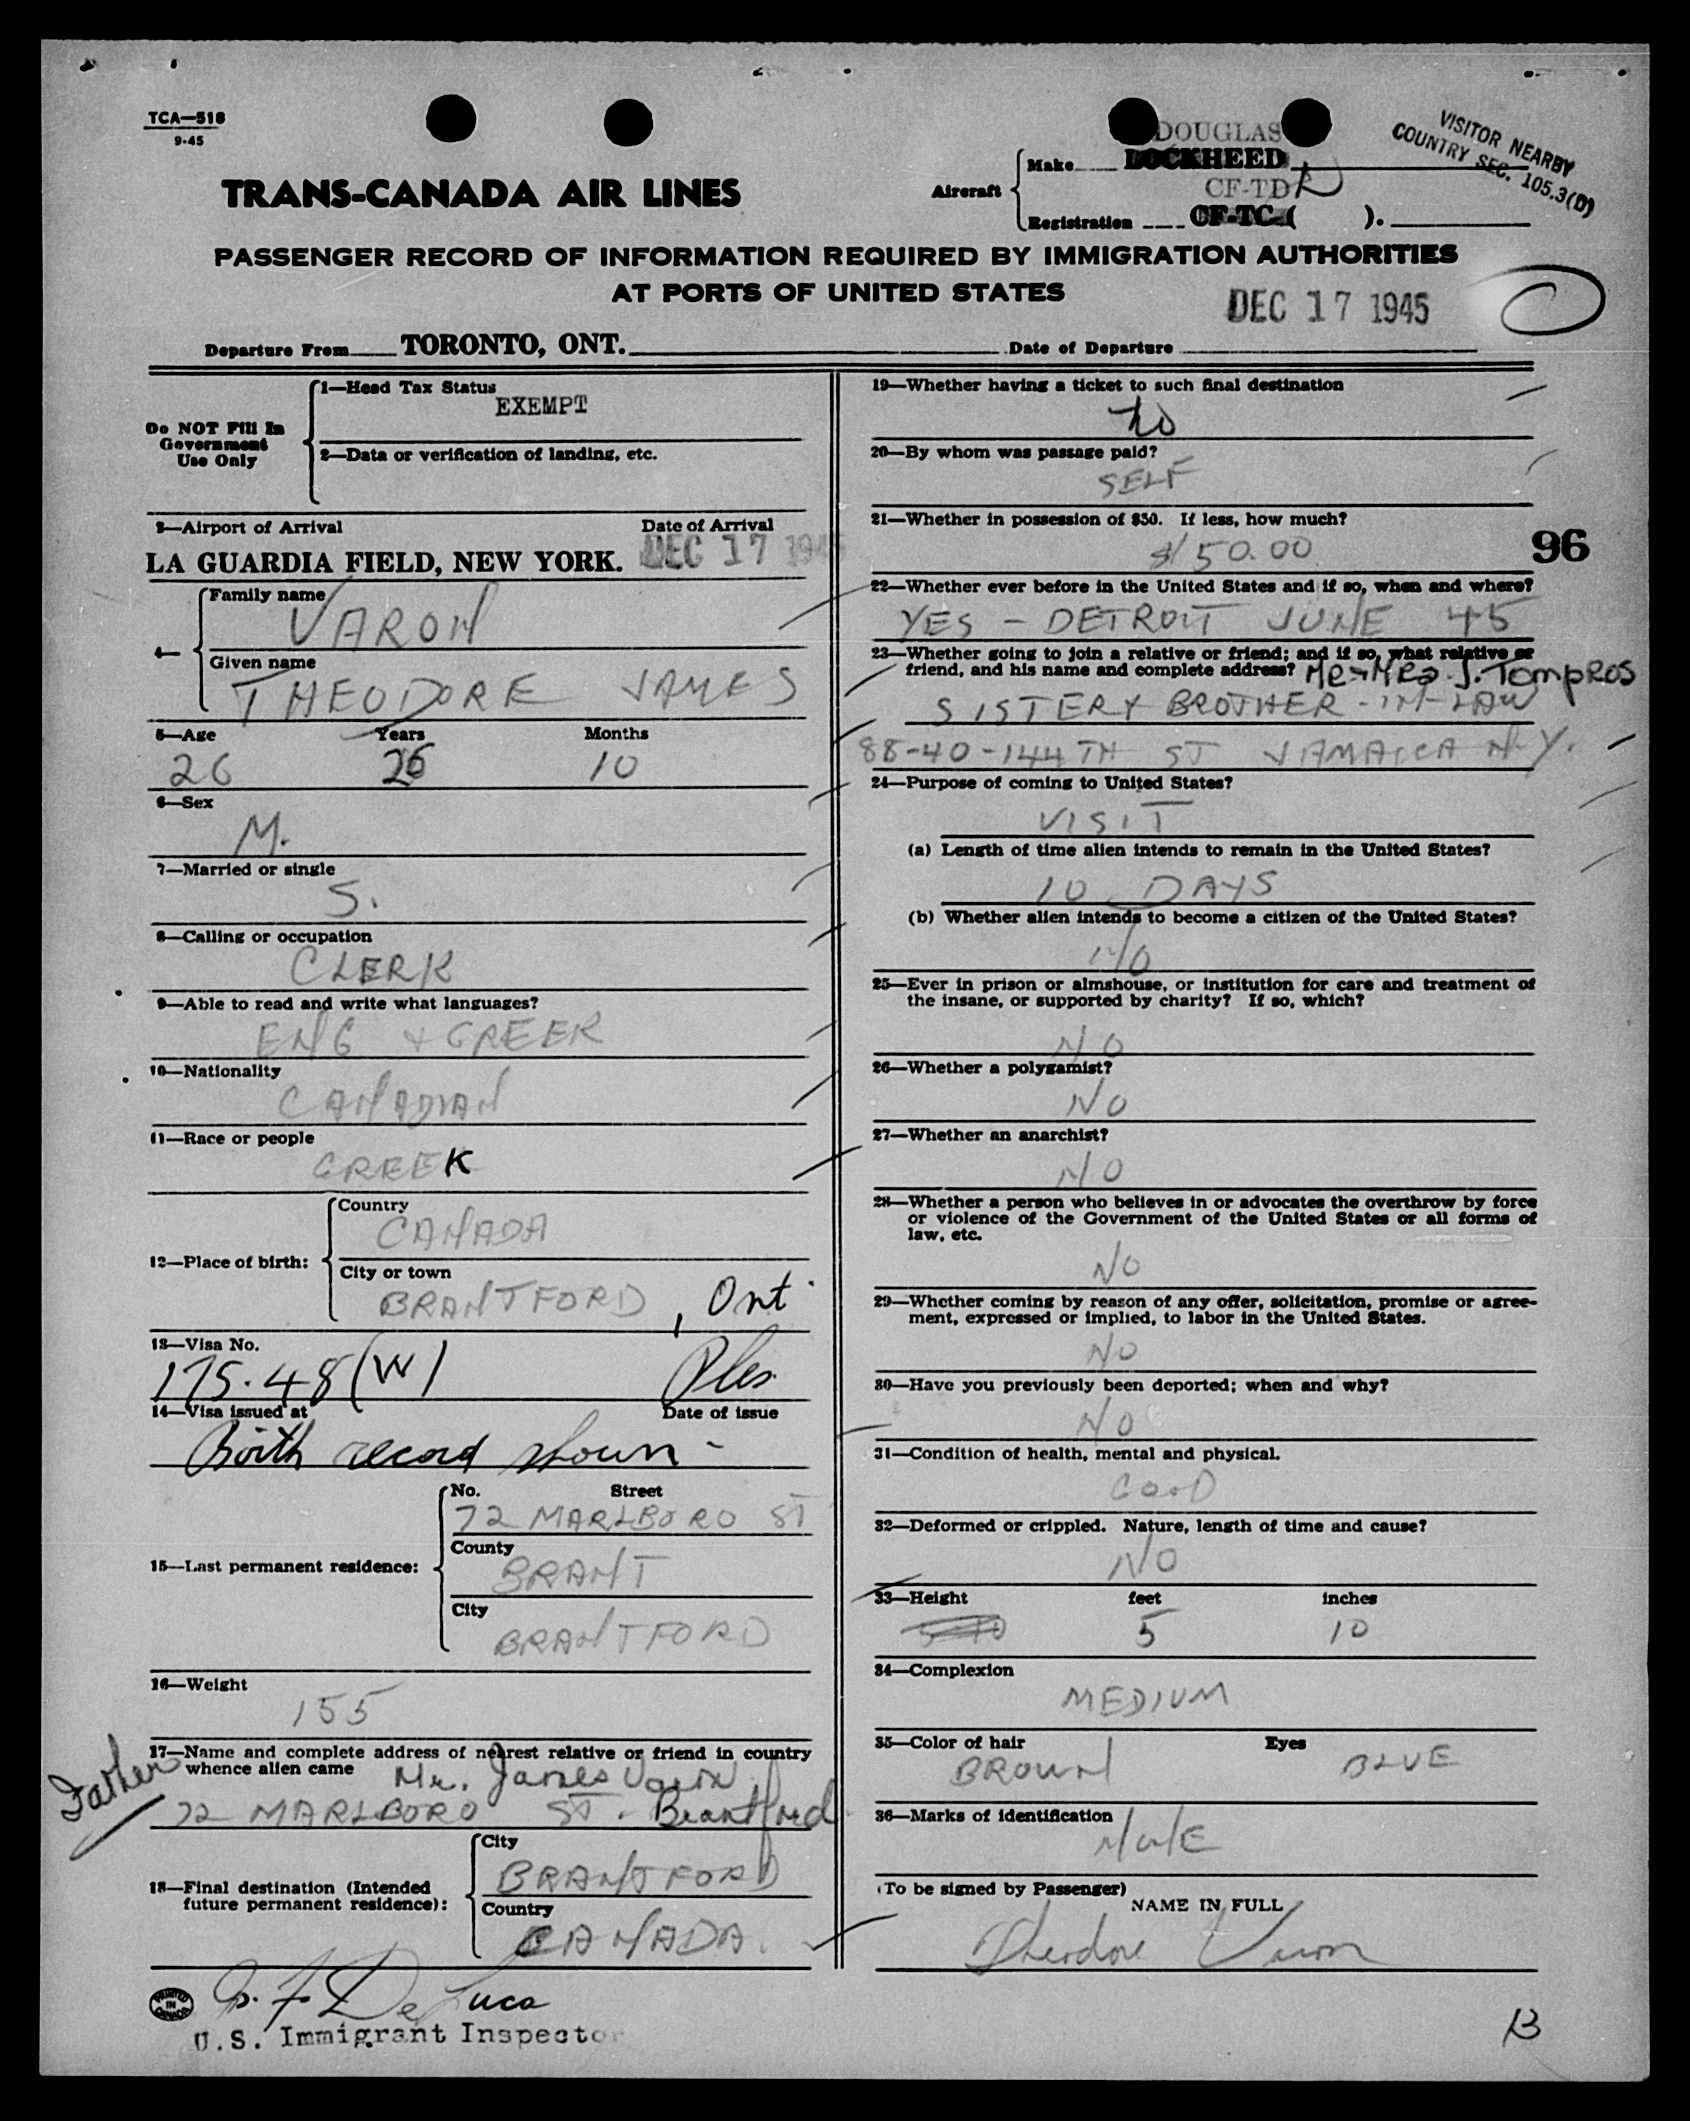 TCA—518
9-45
VISITOR NEARBY
COUNTRY SEC. 105.3(D)
TRANS-CANADA AIR LINES
Aircraft
DOUGLAS
Make LOCKHEED
CF-TDR
Registration CF-TC-( ).
PASSENGER RECORD OF INFORMATION REQUIRED BY IMMIGRATION AUTHORITIES
AT PORTS OF UNITED STATES
DEC 17 1945
Departure From TORONTO, ONT. Date of Departure
Do NOT Fill In
Government
Use Only
1—Head Tax Status
EXEMPT
2—Data or verification of landing, etc.
3—Airport of Arrival Date of Arrival
LA GUARDIA FIELD, NEW YORK. DEC 17 1945
4—
Family name
VARON
Given name
THEODORE JAMES
5—Age Years Months
26 26 10
6—Sex
M.
7—Married or single
S.
8—Calling or occupation
CLERK
9—Able to read and write what languages?
ENG & GREEK
10—Nationality
CANADIAN
11—Race or people
GREEK
12—Place of birth:
Country
CANADA
City or town
BRANTFORD, Ont.
13—Visa No.
175.48(W)
14—Visa issued at Date of issue
Birth record shown -
15—Last permanent residence:
No. Street
72 MARLBORO ST
County
BRANT
City
BRANTFORD
16—Weight
155
17—Name and complete address of nearest relative or friend in country
whence alien came Mr. James Varon
Father
72 MARLBORO ST. Brantford
18—Final destination (Intended
future permanent residence):
City
BRANTFORD
Country
CANADA.
De Luca
U.S. Immigrant Inspector
PRINTED IN CANADA
19—Whether having a ticket to such final destination
No
20—By whom was passage paid?
SELF
21—Whether in possession of $50. If less, how much?
$150.00
96
22—Whether ever before in the United States and if so, when and where?
YES - DETROIT JUNE 45
23—Whether going to join a relative or friend; and if so, what relative or
friend, and his name and complete address? Mr & Mrs. J. Tompros
SISTER & BROTHER-IN-LAW
88-40-144TH ST JAMAICA N.Y.
24—Purpose of coming to United States?
VISIT
(a) Length of time alien intends to remain in the United States?
10 DAYS
(b) Whether alien intends to become a citizen of the United States?
NO
25—Ever in prison or almshouse, or institution for care and treatment of
the insane, or supported by charity? If so, which?
NO
26—Whether a polygamist?
NO
27—Whether an anarchist?
NO
28—Whether a person who believes in or advocates the overthrow by force
or violence of the Government of the United States or all forms of
law, etc.
NO
29—Whether coming by reason of any offer, solicitation, promise or agree-
ment, expressed or implied, to labor in the United States.
NO
30—Have you previously been deported; when and why?
NO
31—Condition of health, mental and physical.
GOOD
32—Deformed or crippled. Nature, length of time and cause?
NO
33—Height feet inches
5 10
34—Complexion
MEDIUM
35—Color of hair Eyes
BROWN BLUE
36—Marks of identification
NONE
(To be signed by Passenger)
NAME IN FULL
Theodore Varon
B